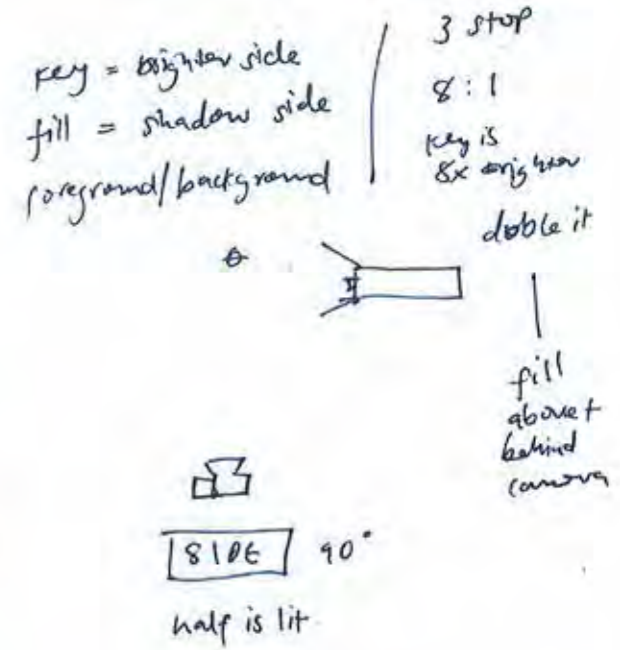 key = brighter side
fill = shadow side
foreground/background
3 stop
8:1
key is
8x brighter
doble it
fill
above +
behind
camera
SIDE 90°
half is lit